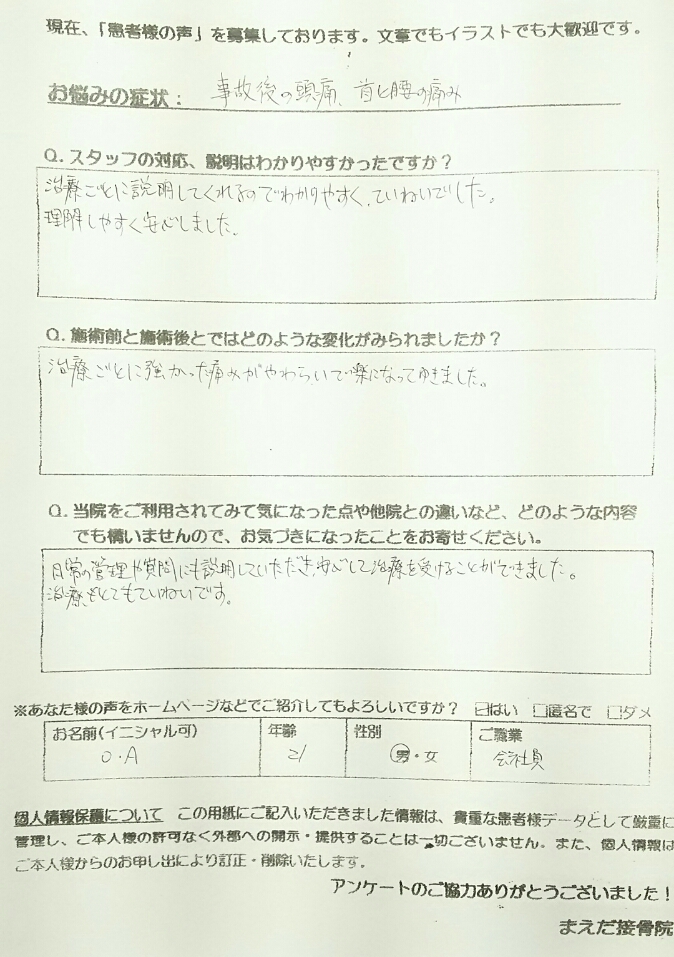 現在、「患者様の声」を募集しております。文章でもイラストでも大歓迎です。
お悩みの症状： 事故後の頭痛、首と腰の痛み
Q.スタッフの対応、説明はわかりやすかったですか？
治療ごとに説明してくれるのでわかりやすく、ていねいでした。
理解しやすく安心しました。
Q.施術前と施術後とではどのような変化がみられましたか？
治療ごとに強かった痛みがやわらいで楽になってゆきました。
Q.当院をご利用されてみて気になった点や他院との違いなど、どのような内容
でも構いませんので、お気づきになったことをお寄せください。
日常の管理や質問にも説明していただき、安心して治療を受けることができました。
治療もとてもていねいです。
※あなた様の声をホームページなどでご紹介してもよろしいですか？ ☑はい □匿名で □ダメ
お名前(イニシャル可) 年齢 性別 ご職業
O.A 21 男・女 会社員
個人情報保護について この用紙にご記入いただきました情報は、貴重な患者様データとして厳重に
管理し、ご本人様の許可なく外部への開示・提供することは一切ございません。また、個人情報は
ご本人様からのお申し出により訂正・削除いたします。
アンケートのご協力ありがとうございました！
まえだ接骨院